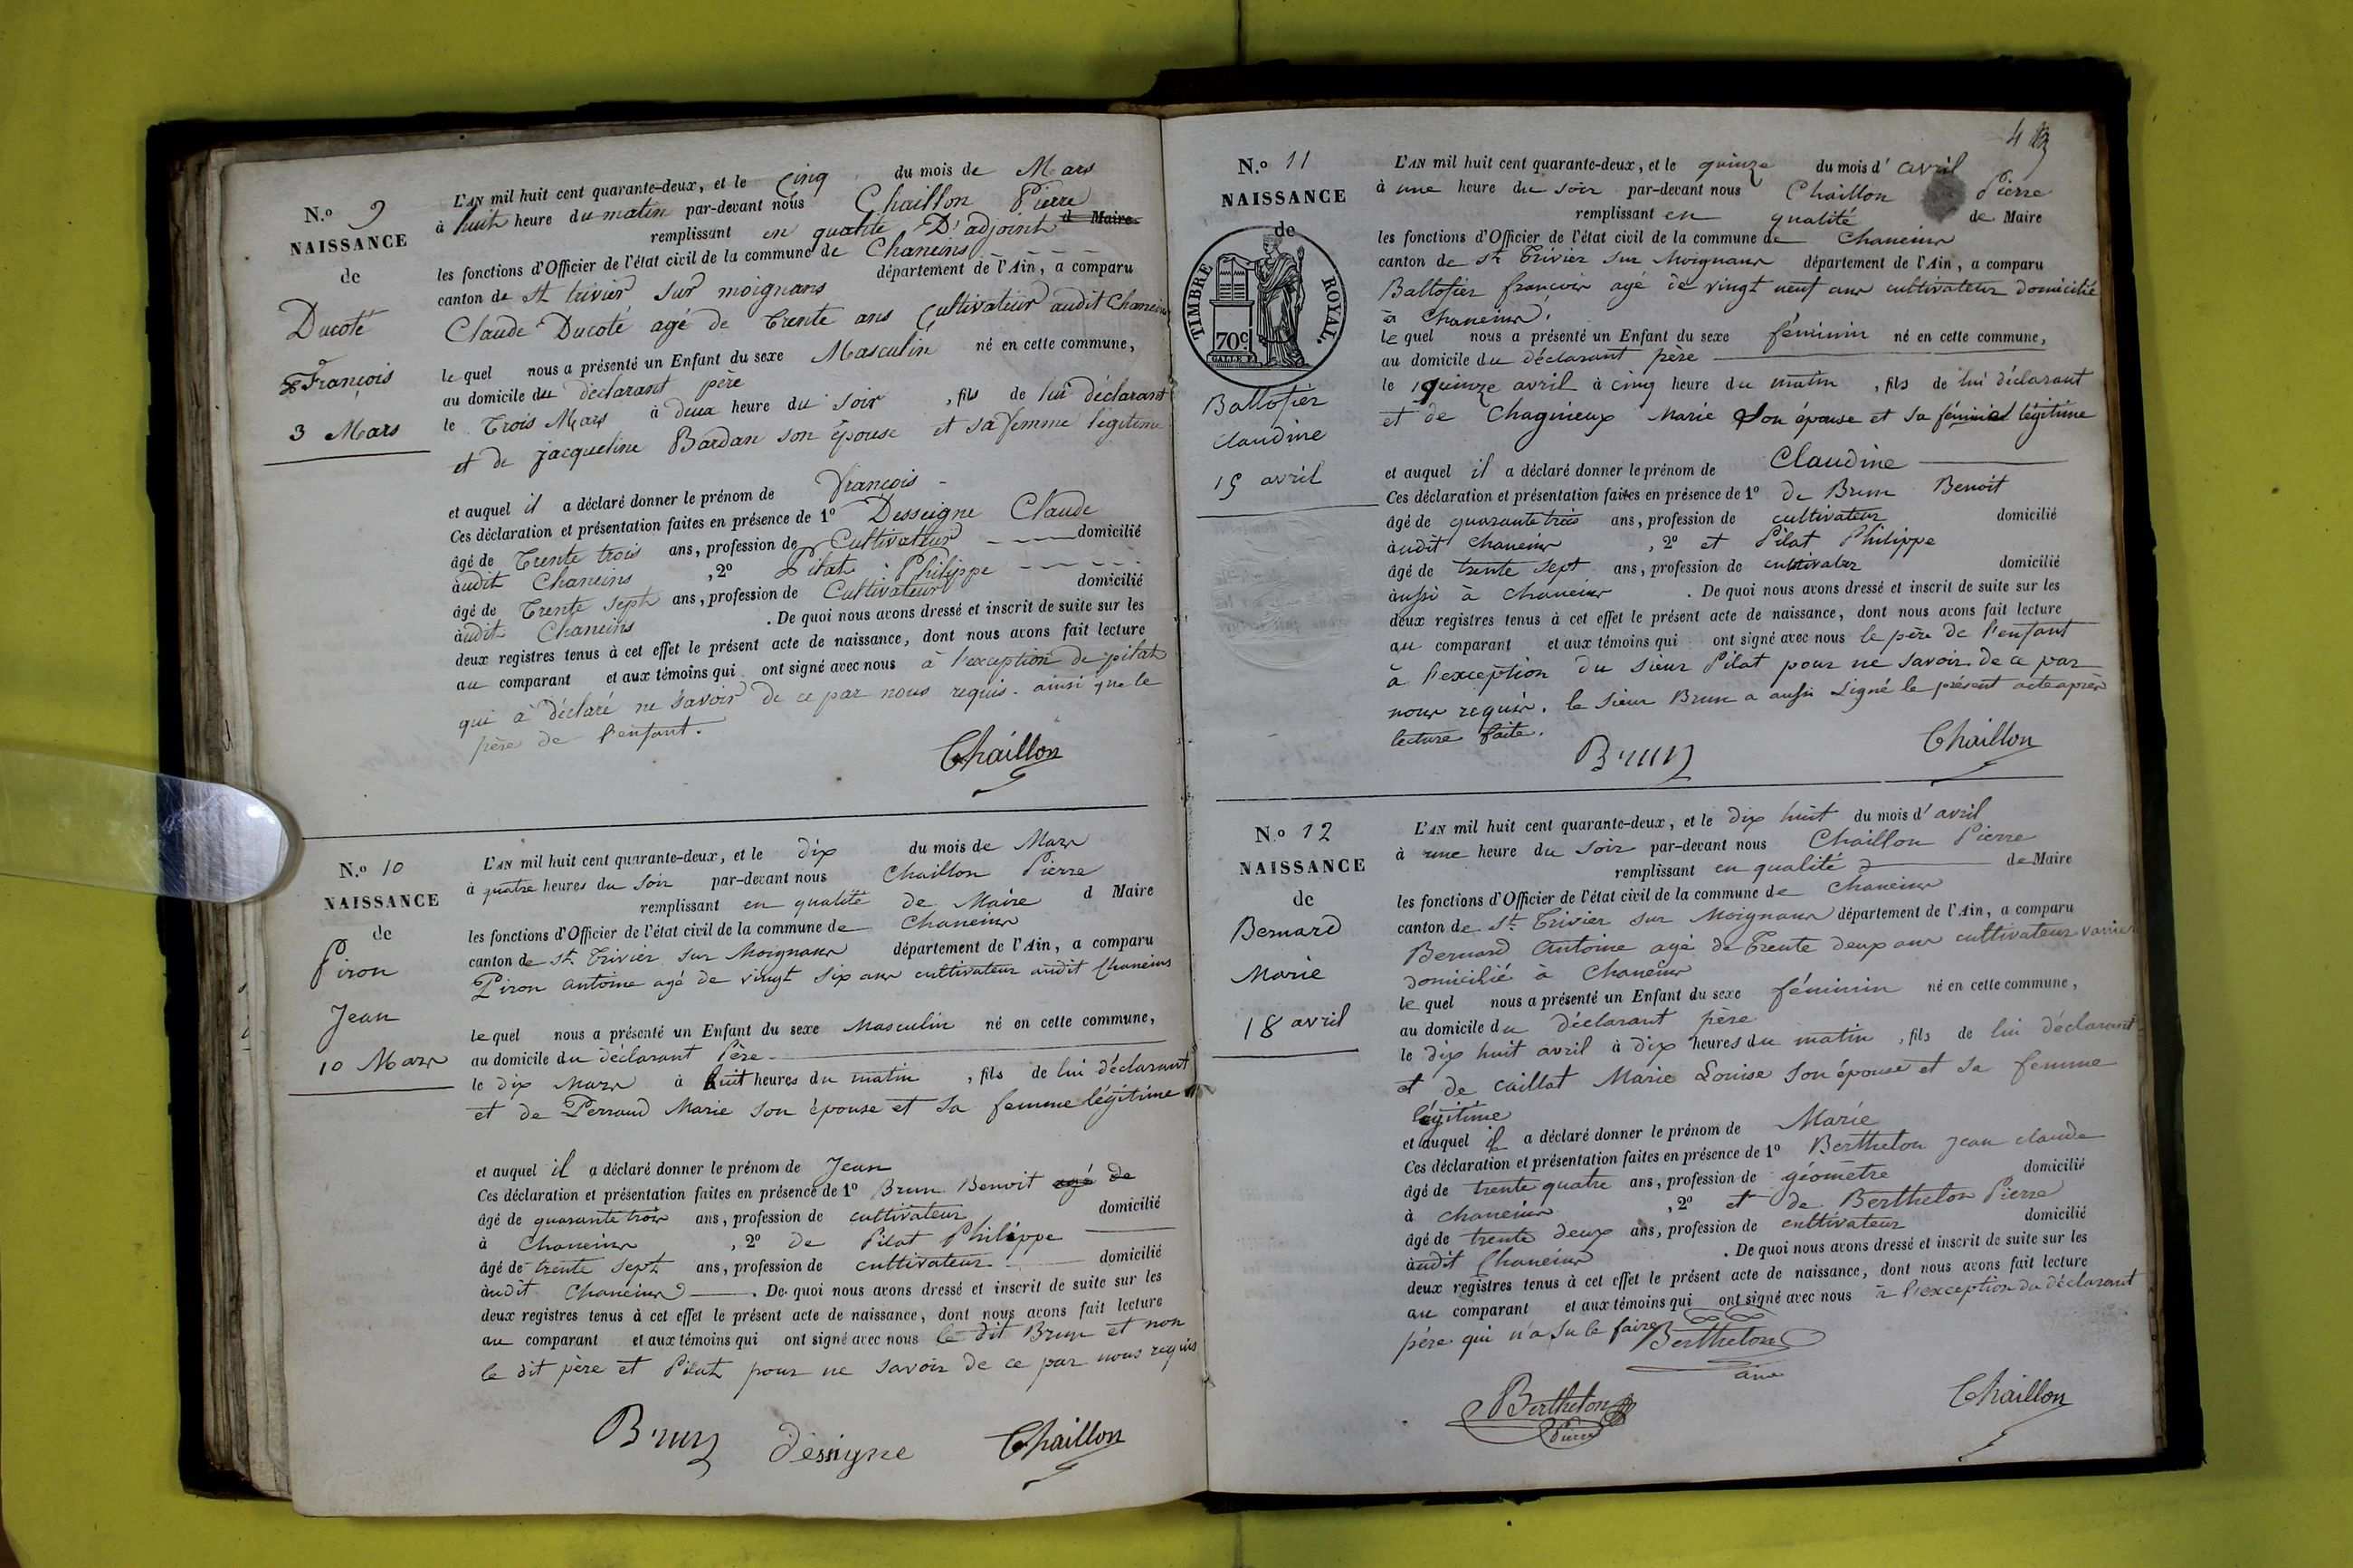 N.o 9
NAISSANCE
de
Ducoté
François
3 Mars
L'AN mil huit cent quarante-deux, et le cinq du mois de Mars
à huit heure du matin par-devant nous Chaillon Pierre
remplissant en qualité D'adjoint d Maire
les fonctions d'Officier de l'état civil de la commune de Chaneins
canton de St trivier sur moignans département de l'Ain, a comparu
Claude Ducoté agé de trente ans Cultivateur audit Chaneins
le quel nous a présenté un Enfant du sexe Masculin né en cette commune,
au domicile du déclarant père
le Trois Mars à deux heure du soir, fils de lui déclarant
et de jacqueline Bardan son épouse et sa femme légitime
et auquel il a déclaré donner le prénom de françois
Ces déclaration et présentation faites en présence de 1o Desseigne Claude
âgé de Trente trois ans, profession de Cultivateur domicilié
audit Chaneins, 2o Pilat Philippe
âgé de Trente sept ans, profession de Cultivateur domicilié
audit Chaneins. De quoi nous avons dressé et inscrit de suite sur les
deux registres tenus à cet effet le présent acte de naissance, dont nous avons fait lecture
au comparant et aux témoins qui ont signé avec nous à l'exception de pilat
qui a déclaré ne savoir de ce par nous requis. ainsi que le
père de l'enfant.
Chaillon
N.o 10
NAISSANCE
de
Piron
Jean
10 Mars
L'AN mil huit cent quarante-deux, et le dix du mois de Mars
à quatre heures du soir par-devant nous Chaillon Pierre
remplissant en qualité de Maire d Maire
les fonctions d'Officier de l'état civil de la commune de Chaneins
canton de St. Trivier sur Moignans département de l'Ain, a comparu
Piron antoine agé de vingt six ans cultivateur audit Chaneins
le quel nous a présenté un Enfant du sexe Masculin né en cette commune,
au domicile du déclarant Père
le dix Mars à huit heures du matin, fils de lui déclarant
et de Perraud Marie son épouse et sa femme légitime
et auquel il a déclaré donner le prénom de Jean
Ces déclaration et présentation faites en présence de 1o Brun Benoit agé de
âgé de quarante trois ans, profession de cultivateur domicilié
à Chaneins, 2o de Pilat Philippe
âgé de trente sept ans, profession de cultivateur domicilié
audit Chaneins. De quoi nous avons dressé et inscrit de suite sur les
deux registres tenus à cet effet le présent acte de naissance, dont nous avons fait lecture
au comparant et aux témoins qui ont signé avec nous le dit Brun et non
le dit père et Pilat pour ne savoir de ce par nous requis
Brun dessigne Chaillon
N.o 11
NAISSANCE
de
TIMBRE ROYAL.
70c
Ballofier
Claudine
15 avril
L'AN mil huit cent quarante-deux, et le quinze du mois d'avril
à une heure du soir par-devant nous Chaillon Pierre
remplissant en qualité de Maire
les fonctions d'Officier de l'état civil de la commune de Chaneins
canton de St Trivier sur Moignans département de l'Ain, a comparu
Ballofier françois agé de vingt neuf ans cultivateur domicilié
à Chaneins,
le quel nous a présenté un Enfant du sexe féminin né en cette commune,
au domicile du déclarant père
le quinze avril à cinq heure du matin, fils de lui déclarant
et de Chagnieux Marie son épouse et sa légitime
et auquel il a déclaré donner le prénom de Claudine
Ces déclaration et présentation faites en présence de 1o de Brun Benoit
âgé de quarante trois ans, profession de cultivateur domicilié
audit Chaneins, 2o et Pilat Philippe
âgé de trente sept ans, profession de cultivateur domicilié
aussi à Chaneins. De quoi nous avons dressé et inscrit de suite sur les
deux registres tenus à cet effet le présent acte de naissance, dont nous avons fait lecture
au comparant et aux témoins qui ont signé avec nous le père de l'enfant
à l'exception du sieur Pilat pour ne savoir de ce par
nous requis. le sieur Brun a aussi signé le présent acte après
lecture faite.
Brun Chaillon
N.o 12
NAISSANCE
de
Bernard
Marie
18 avril
L'AN mil huit cent quarante-deux, et le dix huit du mois d'avril
à une heure du soir par-devant nous Chaillon Pierre
remplissant en qualité d de Maire
les fonctions d'Officier de l'état civil de la commune de Chaneins
canton de St. Trivier sur Moignans département de l'Ain, a comparu
Bernard Antoine agé de Trente deux ans cultivateur
domicilié à Chaneins
le quel nous a présenté un Enfant du sexe féminin né en cette commune,
au domicile du déclarant père
le dix huit avril à dix heures du matin, fils de lui déclarant
et de caillat Marie Louise son épouse et sa femme
légitime
et auquel il a déclaré donner le prénom de Marie
Ces déclaration et présentation faites en présence de 1o Berthelon jean claude
âgé de trente quatre ans, profession de géomètre domicilié
à Chaneins, 2o et de Berthelon Pierre
âgé de trente deux ans, profession de cultivateur domicilié
audit Chaneins. De quoi nous avons dressé et inscrit de suite sur les
deux registres tenus à cet effet le présent acte de naissance, dont nous avons fait lecture
au comparant et aux témoins qui ont signé avec nous à l'exception du déclarant
père qui n'a su le faire
Berthelon
ainé
Berthelon
Pierre
Chaillon